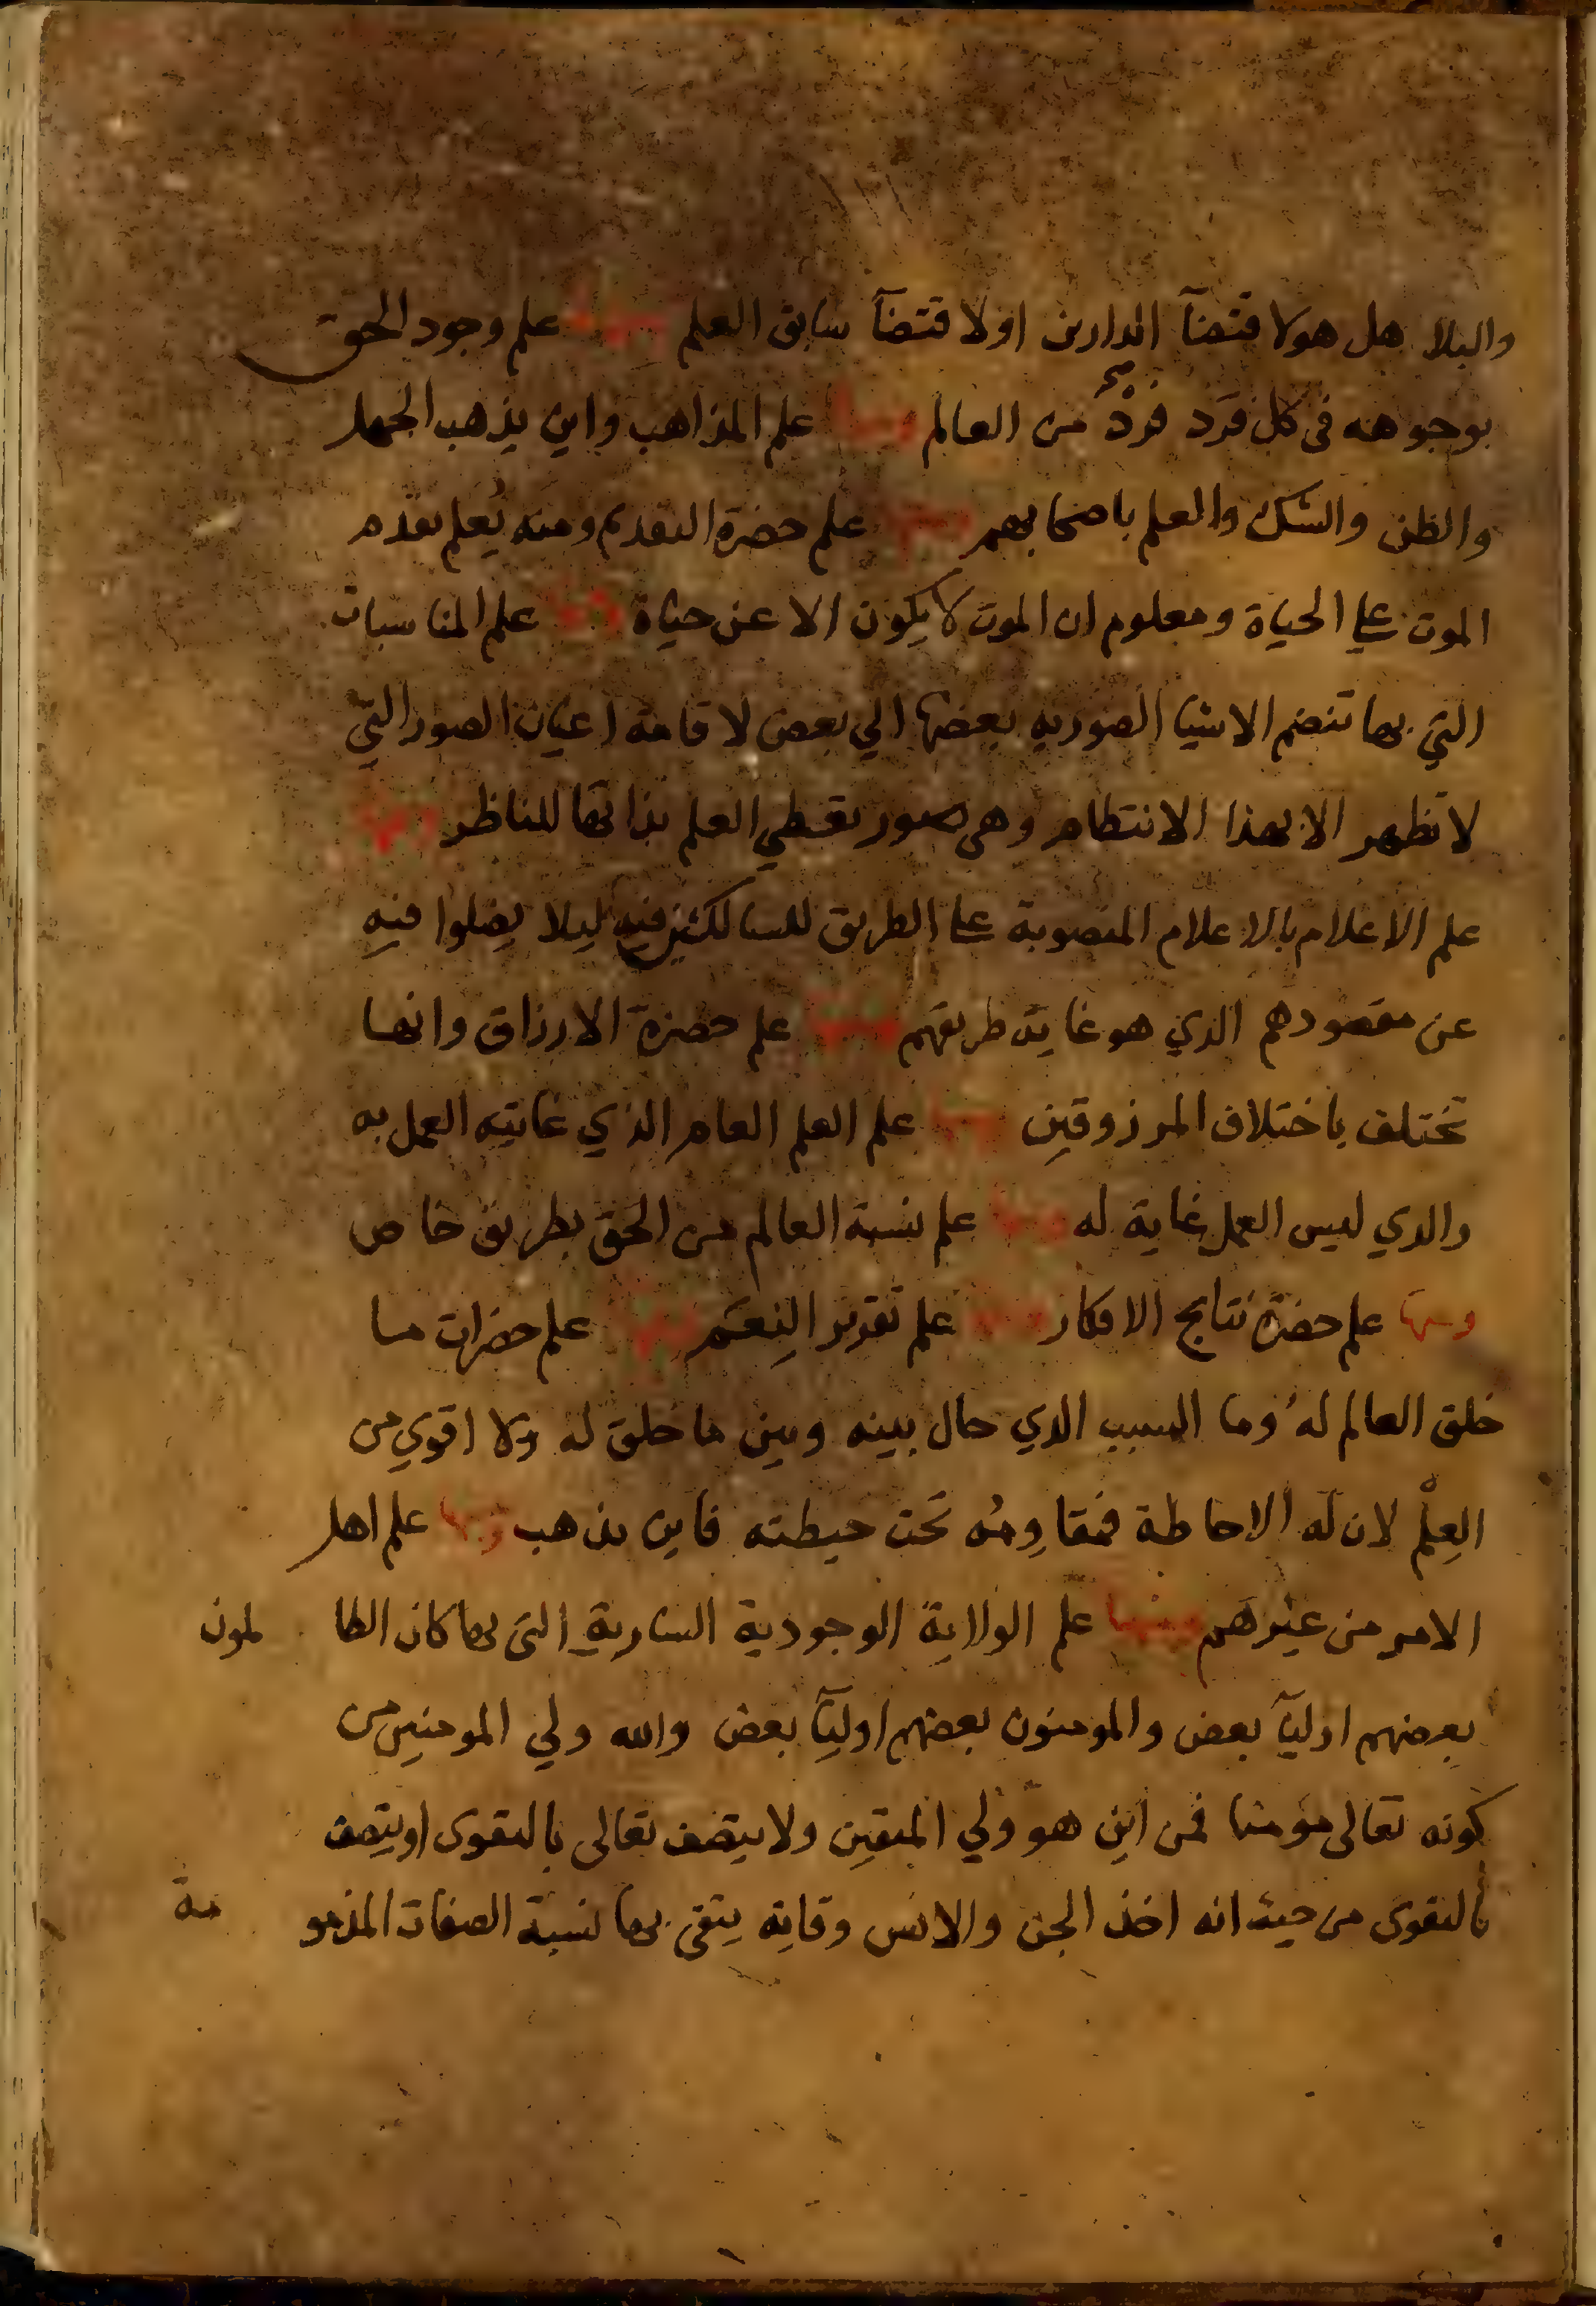 والبلا هل هو لاقتضآ الدارين او لاقتضآ سابق العلم ومنها علم وجود الحق
بوجوهه فى كل فَرد فردٍ صح من العالم ومنها علم المذاهب واين يذهب الجهل
والظن والشك والعلم باصحابهم ومنها علم حضرة التقديم ومنه يُعلم تقدّم
الموت على الحياة ومعلوم ان الموت لا يكون الا عن حياة ومنها علم المناسبات
التي بها تنضم الاشيا الصوريه بعضها الي بعض لاقامة اعيان الصور التي
لا تظهر الا بهذا الانتظام وهى صور تعطي العلم بذاتها للناظر ومنها
علم الاعلام بالاعلام المنصوبة على الطريق للسالكين فيه ليلا يضلوا فيه
عن مقصودهم الذي هو غاية طريقهم ومنها علم حضرة الارزاق وانها
تختلف باختلاف المرزوقين ومنها علم العلم العام الذي غايته العمل به
والذي ليس العمل غاية له ومنها علم نسبة العالم من الحق بطريق خاص
ومنها علم حضرة نتايج الافكار ومنها علم تقرير النِعَم ومنها علم حضرات ما
خلق العالم له وما السبب الذي حال بينه وبين ما خلق له ولا اقوي من
العِلْم لان له الاحاطة فمقاوِمُه تحت حيطته فاين يذهب ومنها علم اهل
الامر من غيرهم ومنها علم الولاية الوجودية السارية التى بها كان الظالمون
بعضهم اوليآ بعض والمومنون بعضهم اوليآ بعض والله ولي المومنين من
كونه تعالى مؤمنا فمن اين هو ولي المتقين ولا يتصف تعالى بالتقوى او يتصف
بالتقوى من حيث انه اخذ الجن والانس وقاية يتقى بها نسبة الصفات المذمومة